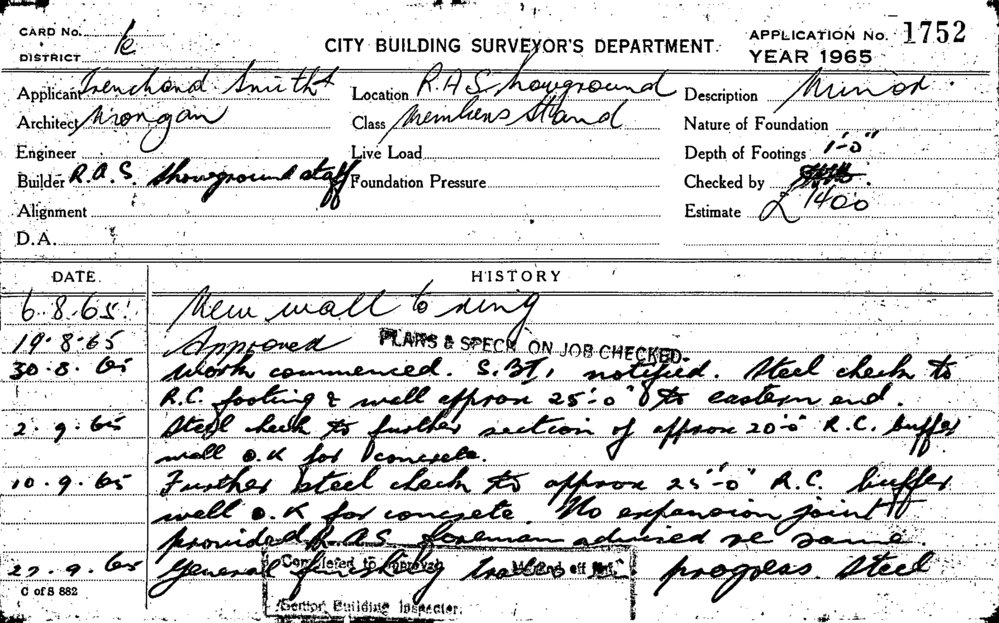 CARD No.
DISTRICT k
CITY BUILDING SURVEYOR'S DEPARTMENT.
APPLICATION No. 1752
YEAR 1965
Applicant Trenchard Smith
Location R.A.S Showground
Description Minor.
Architect Mrongan
Class Members Stand
Nature of Foundation
Engineer
Live Load
Depth of Footings 1'-0"
Builder R.A.S. Showground staff
Foundation Pressure
Checked by
Alignment
Estimate £1400
D.A.
DATE.
HISTORY
6.8.65 New wall to ring
19.8.65 Approved PLANS & SPECN. ON JOB CHECKED.
30.8.65 Work commenced. S.B.I. notified. Steel check to
R.C. footing & wall approx 25'-0" to eastern end.
2.9.65 Steel check to further section of approx 20'-0" R.C. buffer
wall O.K for concrete.
10.9.65 Further steel check to approx 25'-0" R.C. buffer
wall O.K for concrete. No expansion joint
provided R.A.S. foreman advised re same.
22.9.65 General finishing trades in progress. Steel
Completed to Approval Marked off
Senior Building Inspector.
C of S 882